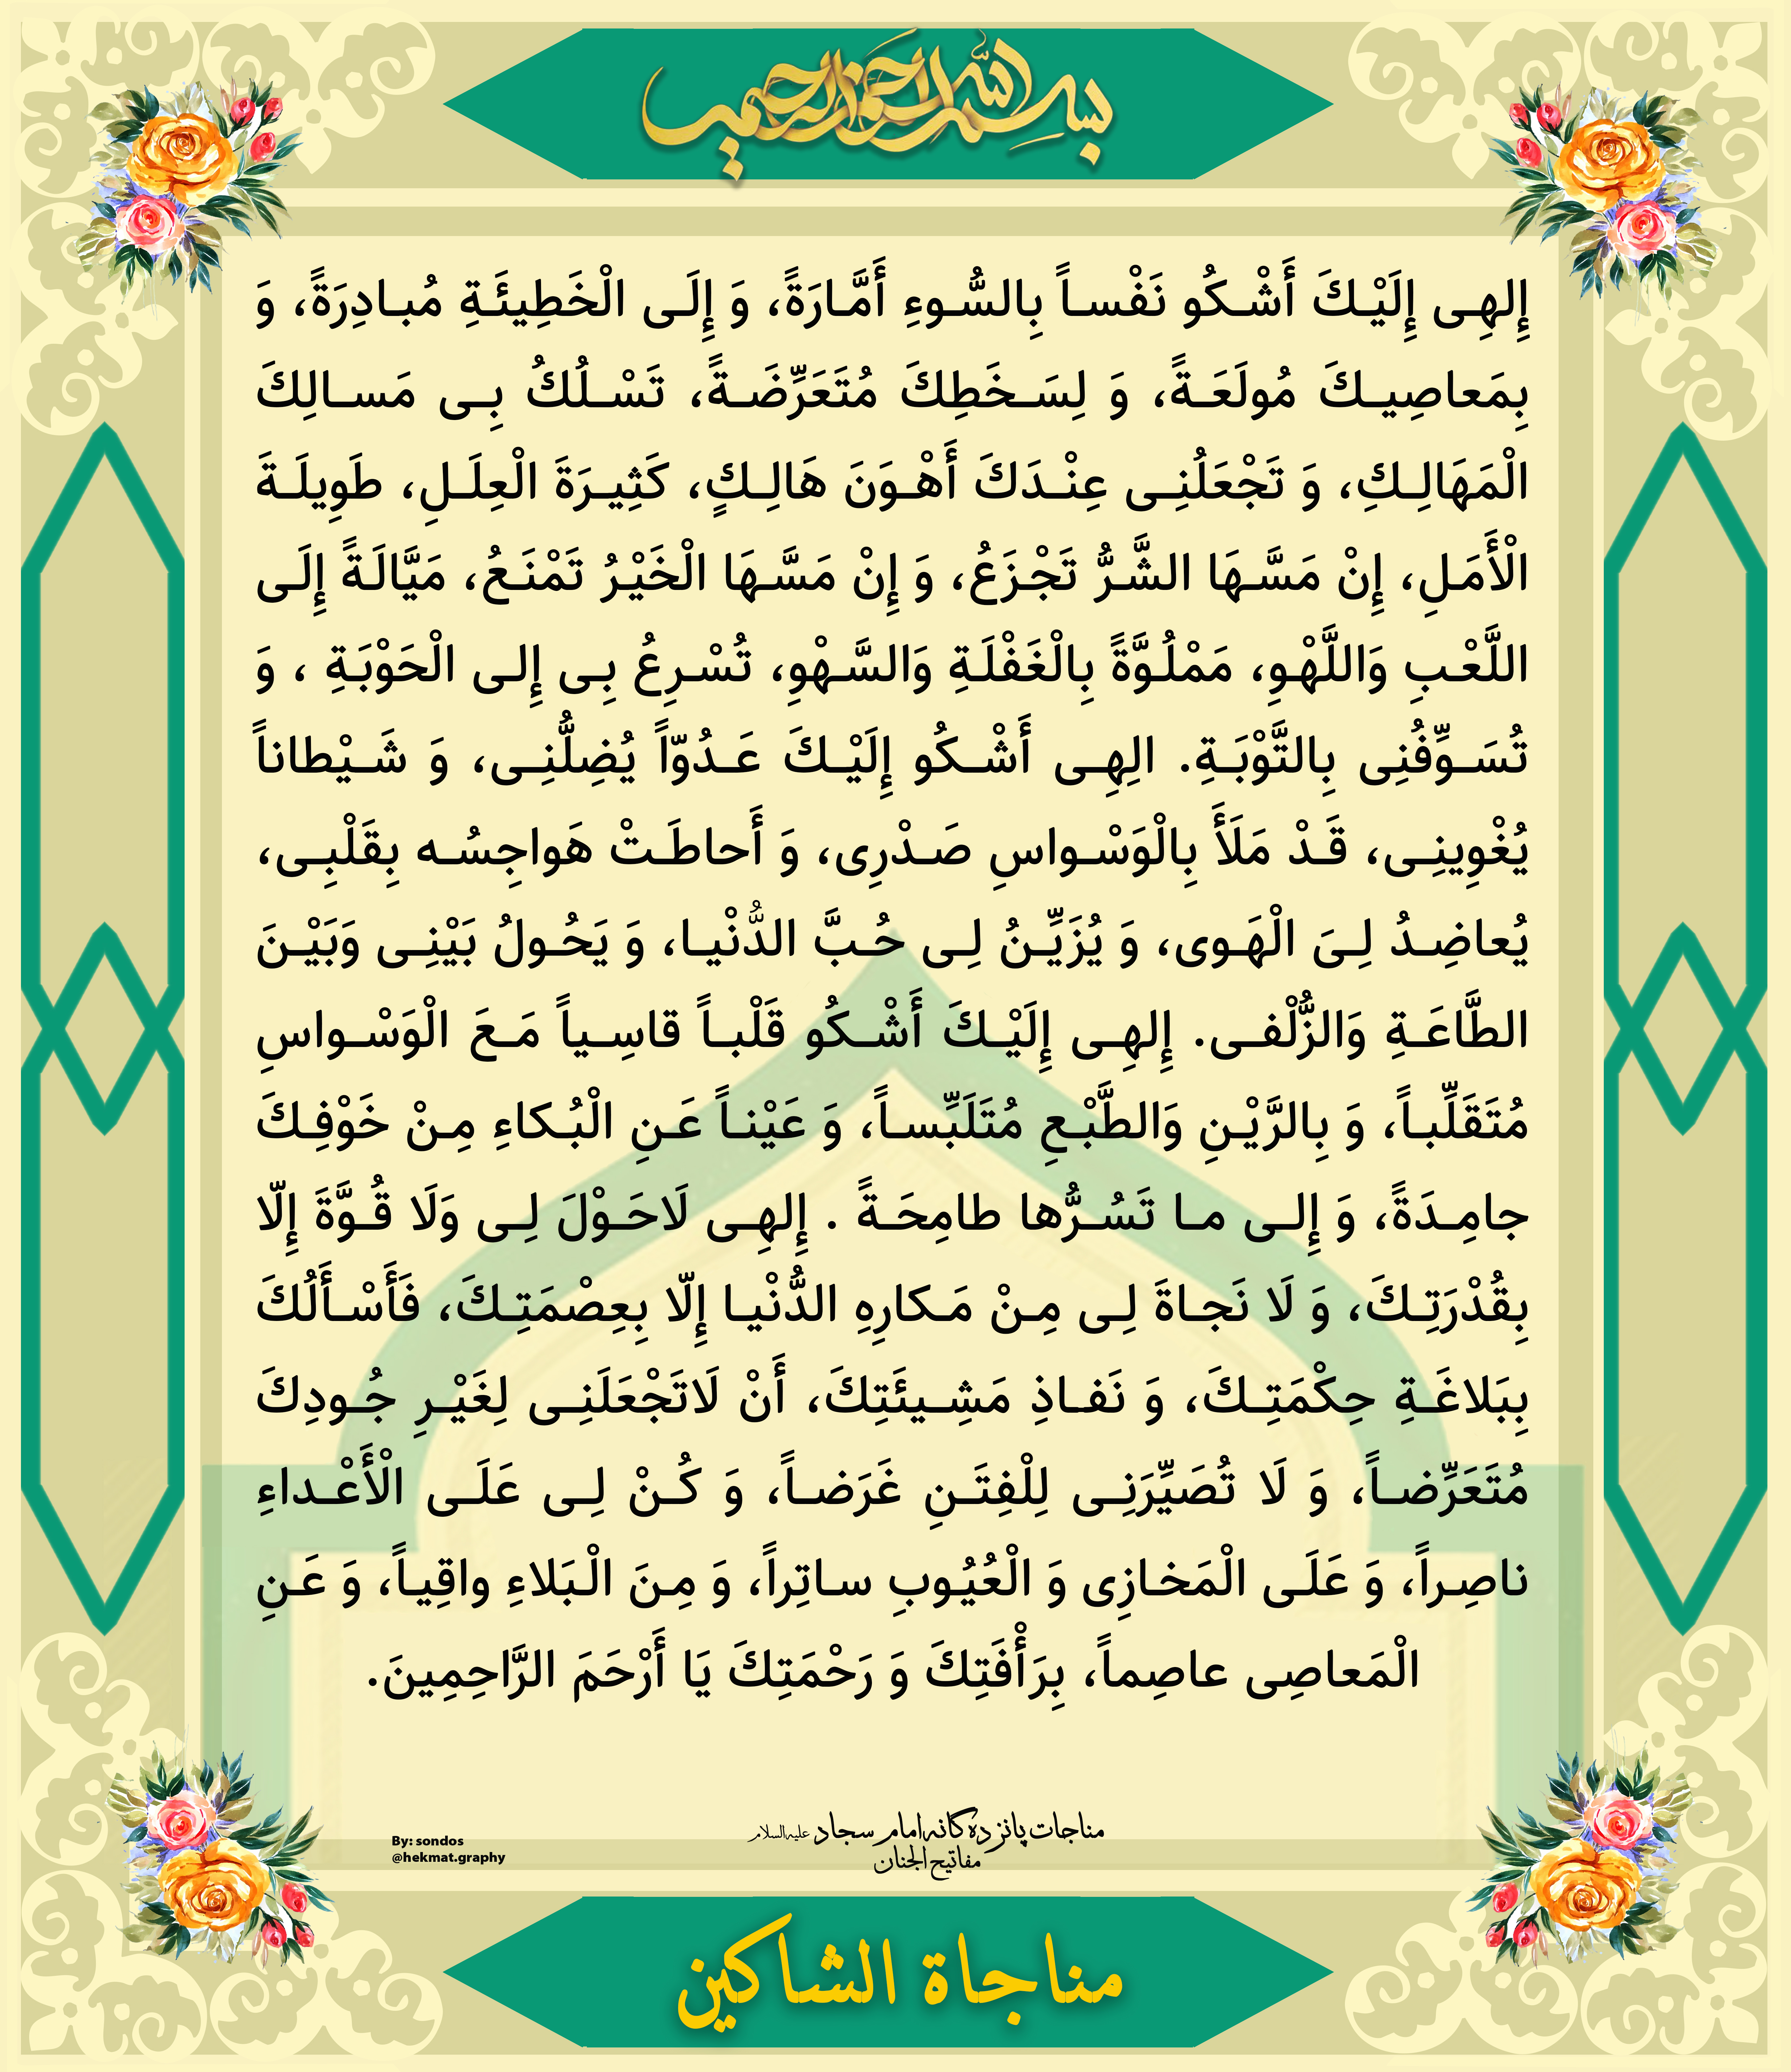 بسم الله الرحمن الرحیم
إِلهِی إِلَیْكَ أَشْكُو نَفْساً بِالسُّوءِ أَمَّارَةً، وَ إِلَی الْخَطِیئَةِ مُبادِرَةً، وَ
بِمَعاصِیكَ مُولَعَةً، وَ لِسَخَطِكَ مُتَعَرِّضَةً، تَسْلُكُ بِی مَسالِكَ
الْمَهَالِكِ، وَ تَجْعَلُنِی عِنْدَكَ أَهْوَنَ هَالِكٍ، كَثِیرَةَ الْعِلَلِ، طَوِیلَةَ
الْأَمَلِ، إِنْ مَسَّهَا الشَّرُّ تَجْزَعُ، وَ إِنْ مَسَّهَا الْخَیْرُ تَمْنَعُ، مَیَّالَةً إِلَی
اللَّعْبِ وَاللَّهْوِ، مَمْلُوَّةً بِالْغَفْلَةِ وَالسَّهْوِ، تُسْرِعُ بِی إِلی الْحَوْبَةِ ، وَ
تُسَوِّفُنِی بِالتَّوْبَةِ. الِهِی أَشْكُو إِلَیْكَ عَدُوّاً یُضِلُّنِی، وَ شَیْطاناً
یُغْوِینِی، قَدْ مَلَأَ بِالْوَسْواسِ صَدْرِی، وَ أَحاطَتْ هَواجِسُه بِقَلْبِی،
یُعاضِدُ لِیَ الْهَوی، وَ یُزَیِّنُ لِی حُبَّ الدُّنْیا، وَ یَحُولُ بَیْنِی وَبَیْنَ
الطَّاعَةِ وَالزُّلْفی. إِلهِی إِلَیْكَ أَشْكُو قَلْباً قاسِیاً مَعَ الْوَسْواسِ
مُتَقَلِّباً، وَ بِالرَّیْنِ وَالطَّبْعِ مُتَلَبِّساً، وَ عَیْناً عَنِ الْبُكاءِ مِنْ خَوْفِكَ
جامِدَةً، وَ إِلی ما تَسُرُّها طامِحَةً . إِلهِی لَاحَوْلَ لِی وَلَا قُوَّةَ إِلّا
بِقُدْرَتِكَ، وَ لَا نَجاةَ لِی مِنْ مَكارِهِ الدُّنْیا إِلّا بِعِصْمَتِكَ، فَأَسْأَلُكَ
بِبَلاغَةِ حِكْمَتِكَ، وَ نَفاذِ مَشِیئَتِكَ، أَنْ لَاتَجْعَلَنِی لِغَیْرِ جُودِكَ
مُتَعَرِّضاً، وَ لَا تُصَیِّرَنِی لِلْفِتَنِ غَرَضاً، وَ كُنْ لِی عَلَی الْأَعْداءِ
ناصِراً، وَ عَلَی الْمَخازِی وَ الْعُیُوبِ ساتِراً، وَ مِنَ الْبَلاءِ واقِیاً، وَ عَنِ
الْمَعاصِی عاصِماً، بِرَأْفَتِكَ وَ رَحْمَتِكَ یَا أَرْحَمَ الرَّاحِمِینَ.
مناجات پانزده گانه امام سجاد علیه السلام
مفاتیح الجنان
By: sondos
@hekmat.graphy
مناجاة الشاكين